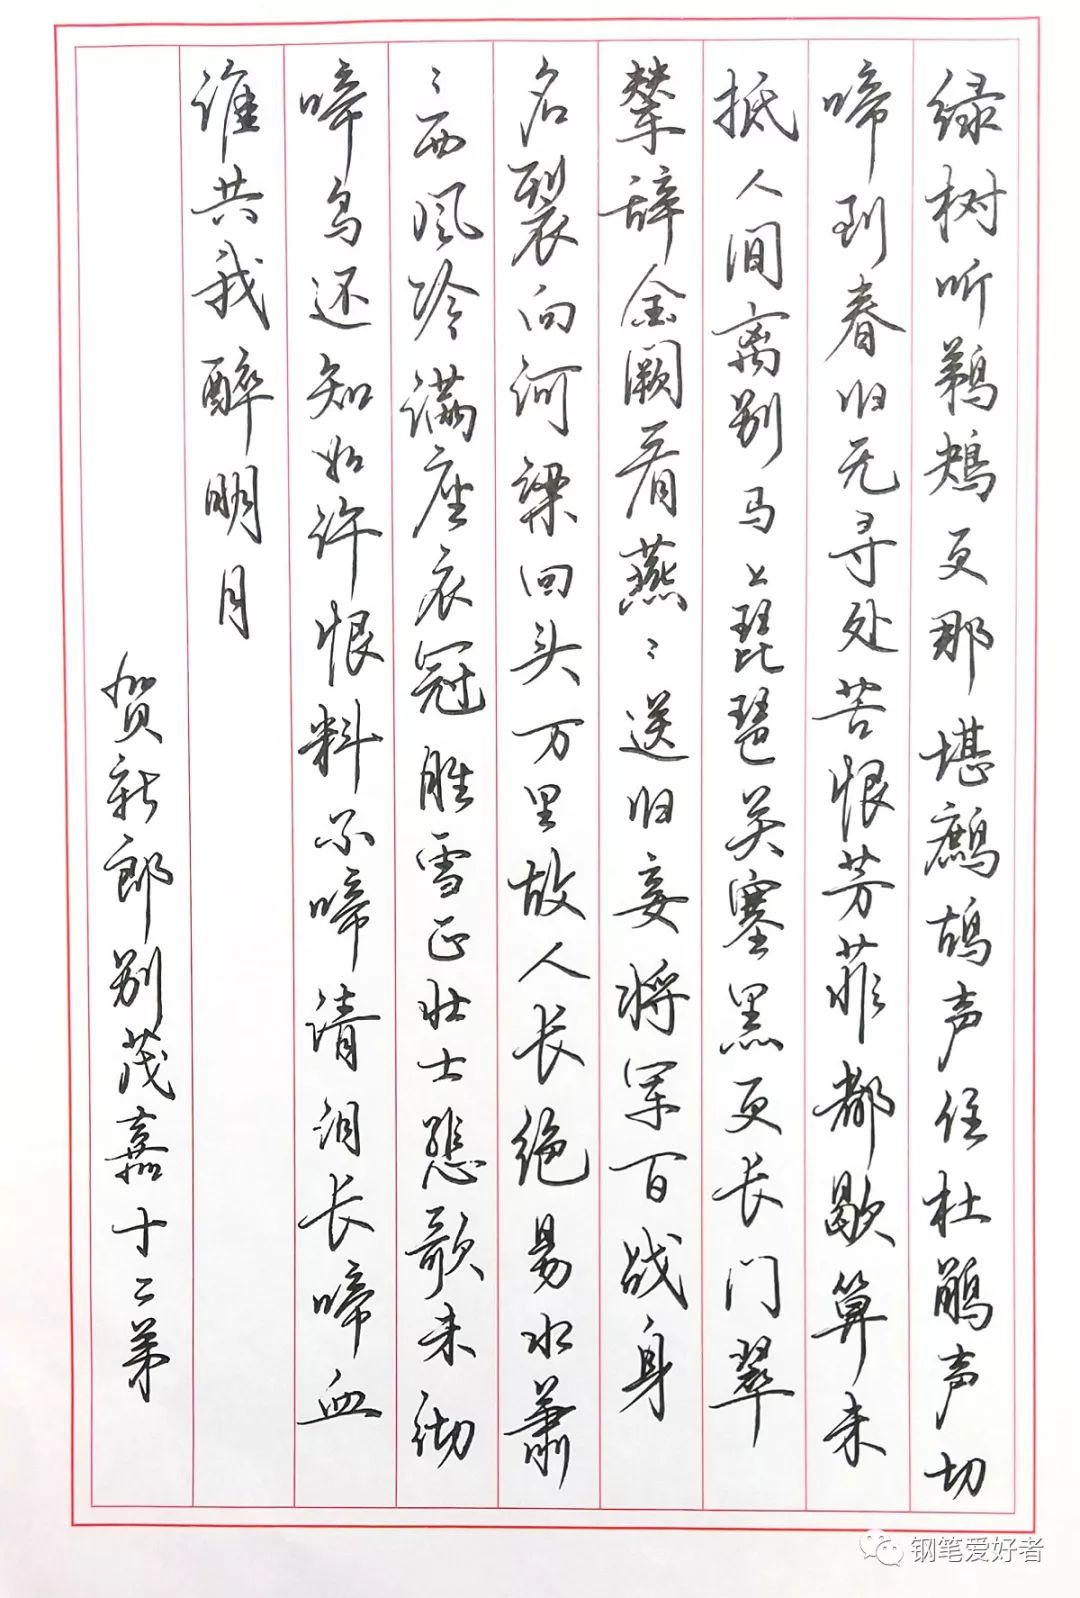 绿树听鹈鴂更那堪鹧鸪声住杜鹃声切
啼到春归无寻处苦恨芳菲都歇算未
抵人间离别马上琵琶关塞黑更长门翠
辇辞金阙看燕〻送归妾将军百战身
名裂向河梁回头万里故人长绝易水萧
〻西风冷满座衣冠胜雪正壮士悲歌未彻
啼鸟还知如许恨料不啼清泪长啼血
谁共我醉明月
贺新郎别茂嘉十二弟
钢笔爱好者